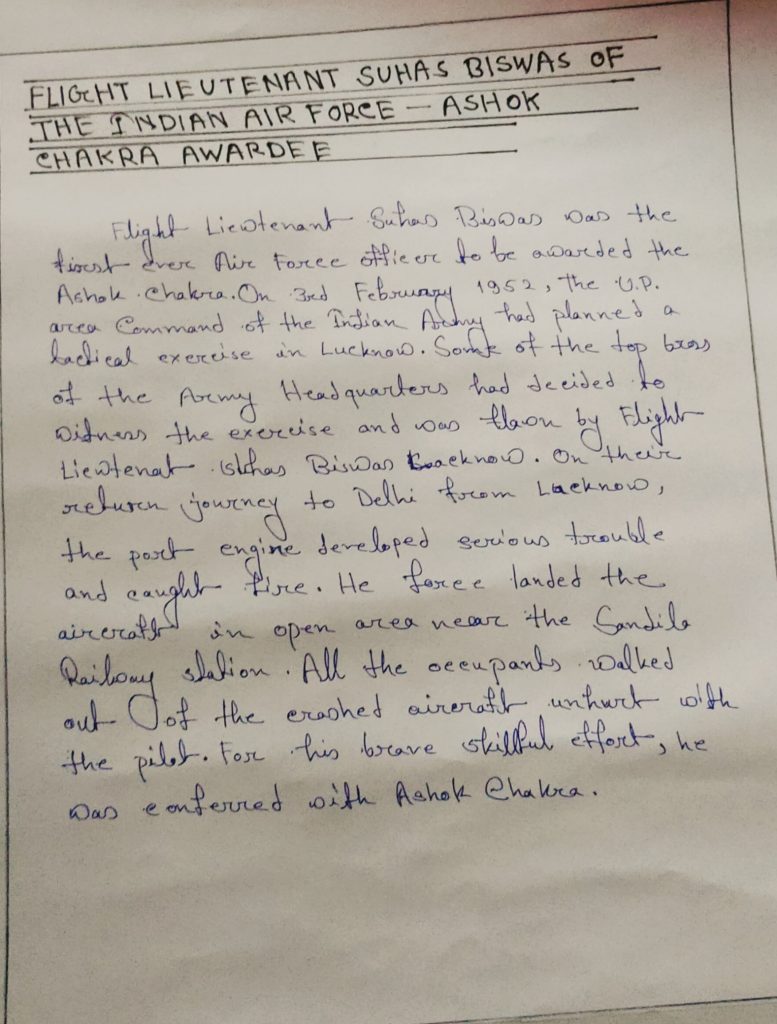 FLIGHT LIEUTENANT SUHAS BISWAS OF
THE INDIAN AIR FORCE — ASHOK
CHAKRA AWARDEE
Flight Liewtenant Suhas Biswas was the
first ever Air Force officer to be awarded the
Ashok Chakra. On 3rd February 1952, the U.P.
area Command of the Indian Army had planned a
tactical exercise in Lucknow. Some of the top brass
of the Army Headquarters had decided to
witness the exercise and was flown by Flight
Liewtenat Suhas Biswas Lucknow. On their
return journey to Delhi from Lucknow,
the port engine developed serious trouble
and caught fire. He force landed the
aircraft in open area near the Sandila
Railway station. All the occupants walked
out of the crashed aircraft unhurt with
the pilot. For his brave skillful effort, he
was conferred with Ashok Chakra.